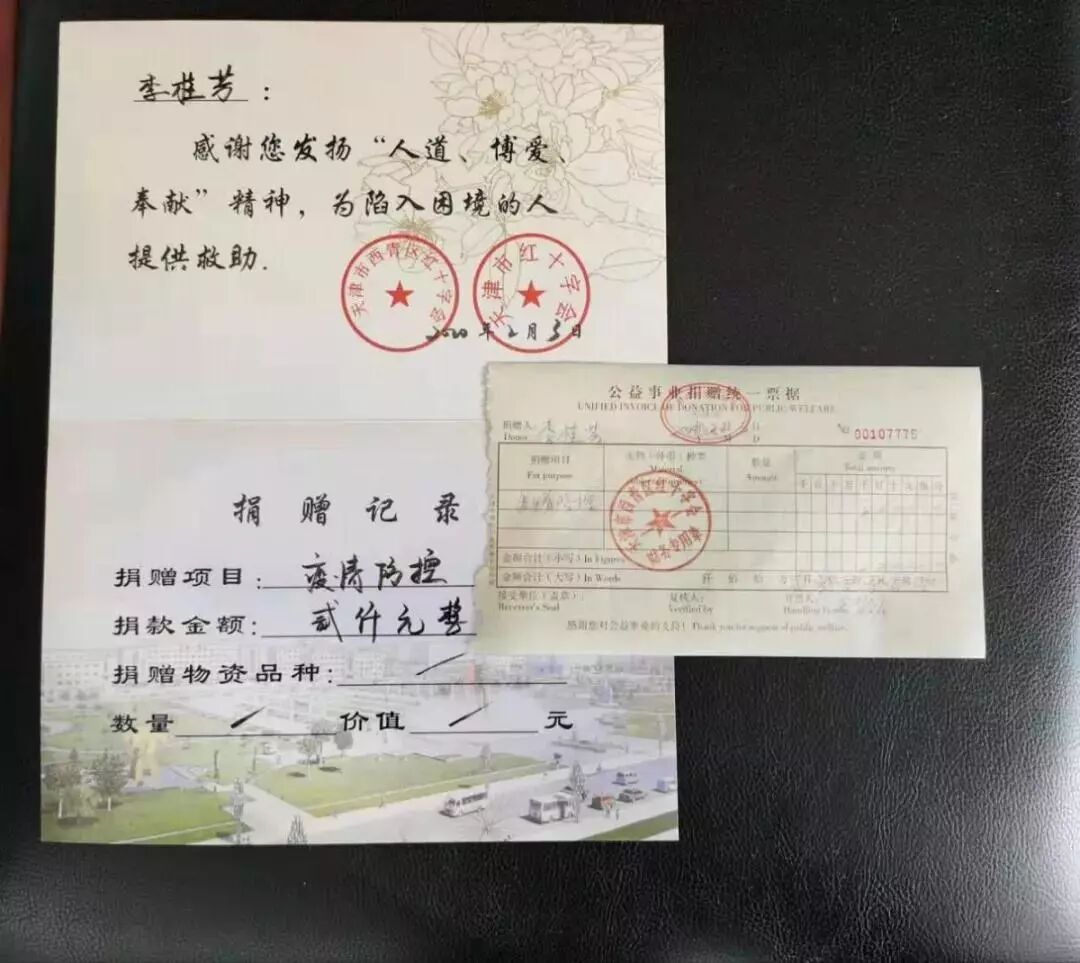 李桂芳：
感谢您发扬“人道、博爱、
奉献”精神，为陷入困境的人
提供救助.
天津市西青区红十字会
天津市红十字会
2020年2月3日
捐赠记录
捐赠项目：疫情防控
捐款金额：贰仟元整
捐赠物资品种：/
数量 / 价值 / 元
公益事业捐赠统一票据
UNIFIED INVOICE OF DONATION FOR PUBLIC WELFARE
捐赠人 李桂芳
Donor
Y M D
№ 00107775
捐赠项目
For purpose
实物（外币）种类
Material
数量
Amount
金额
Total amount
千百十万千百十元角分
疫情防控
天津市西青区红十字会
财务专用章
金额合计（小写）In Figures
金额合计（大写）In Words
仟 佰 拾 万
接受单位（盖章）：
Receiver's Seal
复核人：
Verified by
开票人：
Handling Person
感谢您对公益事业的支持！Thank you for support of public welfare.